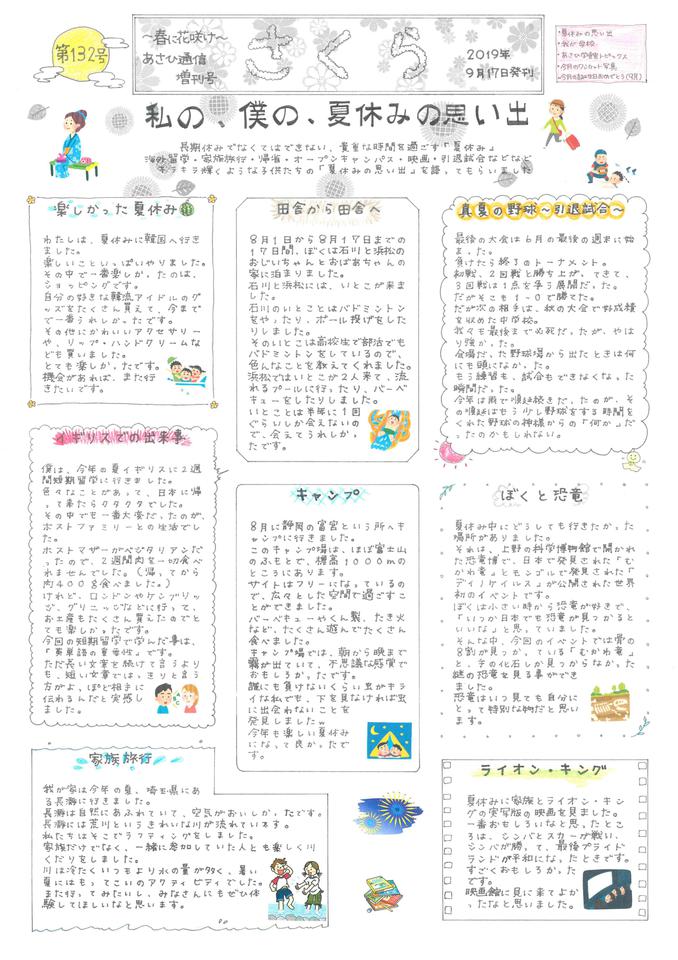 第132号
～春に花咲け～
あさひ通信
増刊号
さくら
2019年
9月17日発刊
・夏休みの思い出
・我が学校
・あさひ学習館トピックス
・今月のワンショット写真
・今月のお誕生日おめでとう(9月)
私の、僕の、夏休みの思い出
長期休みでなくてはできない、貴重な時間を過ごす「夏休み」
海外留学・家族旅行・帰省・オープンキャンパス・映画・引退試合などなど
キラキラ輝くような子供たちの「夏休みの思い出」を語ってもらいました
楽しかった夏休み
わたしは、夏休みに韓国へ行き
ました。
楽しいことといっぱいやりました。
その中で一番楽しかったのは、
ショッピングです。
自分の好きな韓流アイドルのグ
ッズをたくさん買えて、今まで
で一番うれしかったです。
その他にかわいいアクセサリー
や、リップ・ハンドクリームな
ども買いました。
とても楽しかったです。
機会があれば、また行
きたいです。
田舎から田舎へ
8月1日から8月17日までの
17日間、ぼくは石川と浜松の
おじいちゃんとおばあちゃんの
家に泊まりました。
石川と浜松には、いとこが来ま
した。
石川のいとことはバドミントン
をやったり、ボール投げをした
りしました。
そのいとこは高校生で部活でも
バドミントンをしているので、
色んなことを教えてくれました。
浜松ではいとこが2人来て、流
れるプールに行ったり、バーベ
キューをしたりしました。
いとことは半年に1回
ぐらいしか会えないの
で、会えてうれしかっ
たです。
真夏の野球～引退試合～
最後の大会は6月の最後の週末に始
まった。
負けたら終了のトーナメント。
初戦、2回戦と勝ち上がってきて、
3回戦は1点を争う展開だった。
だがそこも1-0で勝てた。
だが次の相手は、秋の大会で好成績
を収めた中学校。
我々も最後まで必死だったが、やは
り強かった。
会場だった野球場から出たときは何
にも頭になかった。
もう練習も、試合もできなくなった
瞬間だった。
今年は雨で順延続きだったのが、そ
の順延はもう少し野球をする時間を
くれた野球の神様からの「何か」だ
ったのかもしれない。
イギリスでの出来事
僕は、今年の夏イギリスに2週
間短期留学に行きました。
色々なことがあって、日本に帰
って来たらクタクタでした。
その中でも一番大変だったのが、
ホストファミリーとの生活でし
た。
ホストマザーがベジタリアンだ
ったので、2週間肉を一切食べ
れませんでした。(帰ってから
肉400g食べました。)
けれど、ロンドンやケンブリッ
ジ、グリニッジなどに行って、
お土産もたくさん買えたのでと
ても楽しかったです。
今回の短期留学で学んだ事は、
「英単語の重要性」です。
ただ長い文章を続けて言うより
も、短い文章では、きりと言う
方がよっぽど相手に
伝わるんだと実感し
ました。
キャンプ
8月に静岡の富宮という所へキ
ャンプに行きました。
このキャンプ場は、ほぼ富士山
のふもとで、標高1000mの
ところにあります。
サイトはフリーになっているの
で、広々とした空間で過ごすこ
とができました。
バーベキューやくん製、たき火
など、たくさん遊んでたくさん
食べました。
キャンプ場では、朝から晩まで
霧が出ていて、不思議な感覚で
おもしろかったです。
誰にも負けないくらい虫がキラ
イな私でも、下を見なければ虫
に出会わないことを
発見しましたw
今年も楽しい夏休み
になって良かったで
す。
ぼくと恐竜
夏休み中にどうしても行きたかった
場所がありました。
それは、上野の科学博物館で開かれ
た恐竜博で、日本で発見された「む
かわ竜」とモンゴルで発見された「
デイノケイルス」が公開された世界
初のイベントです。
ぼくは小さい時から恐竜が好きで、
「いつか日本でも恐竜が見つかると
いいな」と思っていました。
そんな中、今回のイベントでは骨の
8割が見つかっている「むかわ竜」
と、手の化石しか見つからなかった
謎の恐竜を見る事ができ
ました。
恐竜はいつ見ても自分に
とって特別な物だと思い
ます。
家族旅行
我が家は今年の夏、埼玉県にあ
る長瀞に行きました。
長瀞は自然にあふれていて、空気がおいしかったです。
長瀞には荒川というきれいな川が流れています。
私たちはそこでラフティングをしました。
家族だけでなく、一緒に参加していた人とも楽しく川
くだりをしました。
川は冷たくいつもより水の量が少なく、暑い
夏にはもってこいのアクティビティでした。
また行ってみたいし、みなさんにもぜひ体
験してほしいなと思います。
ライオン・キング
夏休みに家族とライオン・キン
グの実写版の映画を見ました。
一番おもしろいなと思ったとこ
ろは、シンバとスカーが戦い、
シンバが勝って、最後プライド
ランドが平和になったときです。
すごくおもしろかった
です。
映画館に見に来てよか
ったなと思いました。